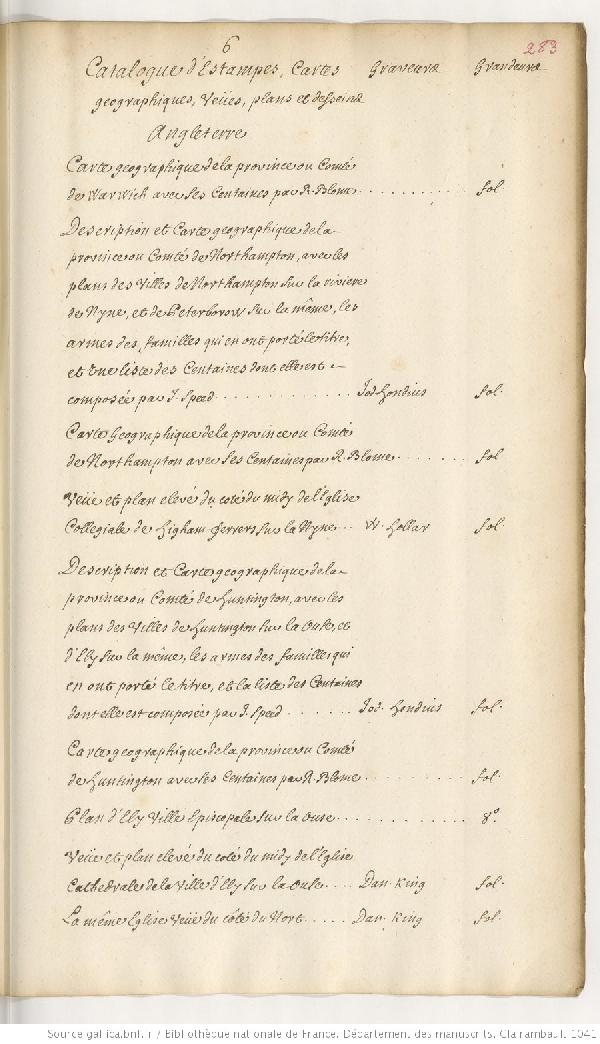 6
283
Catalogue d'Estampes, Cartes Graveurs Grandeurs
geographiques, Veües, plans et desseins
Angleterre
Carte geographique de la province ou Comté
de Warwich avec ses Centaines par R. Blome . . . . . . . . . . fol.
Description et Carte geographique de la
province ou Comté de Northampton, avec les
plans des Villes de Northampton sur la riviere
de Nyne, et de Peterborow sur la même, les
armes des familles qui en ont porté le titre,
et une liste des Centaines dont elle est
composée par J. Speed . . . . . . . . . . Jod. Hondius fol.
Carte Geographique de la province ou Comté
de Northampton avec ses Centaines par R. Blome . . . . . . . fol.
Veüe et plan elevé du coté du midy de l'Eglise
Collegiale de Higham-ferrers sur la Nyne . . W. Hollar fol.
Description et Carte geographique de la
province ou Comté de Huntington, avec les
plans des Villes de Huntington sur la Ouse, et
d'Ely sur la même, les armes des familles qui
en ont porté le titre, et la liste des Centaines
dont elle est composée par J. Speed . . . . . . Jod. Hondius fol.
Carte geographique de la province ou Comté
de Huntington avec ses Centaines par R. Blome . . . . . . . . . fol.
Plan d'Ely Ville Episcopale sur la Ouse . . . . . . . . . . . . 8.°
Veüe et plan elevé du coté du midy de l'Eglise
Cathedrale de la Ville d'Ely sur la Ouse . . . . Dan. King fol.
La même Eglise Veüe du côté du Nort . . . . . Dan. King fol.
Source gallica.bnf.fr / Bibliothèque nationale de France. Département des manuscrits. Clairambault 1041